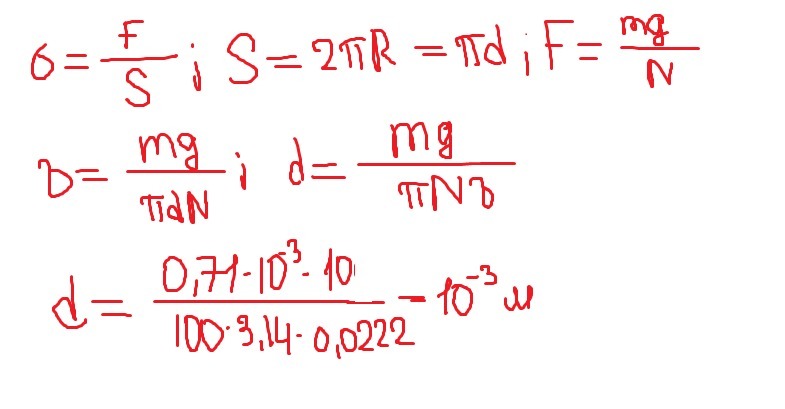 б = F/S ; S = 2πR = πd ; F = mg/N
б = mg/πdN ; d = mg/πNб
d = 0,71·10³·10/100·3,14·0,0222 = 10⁻³ м